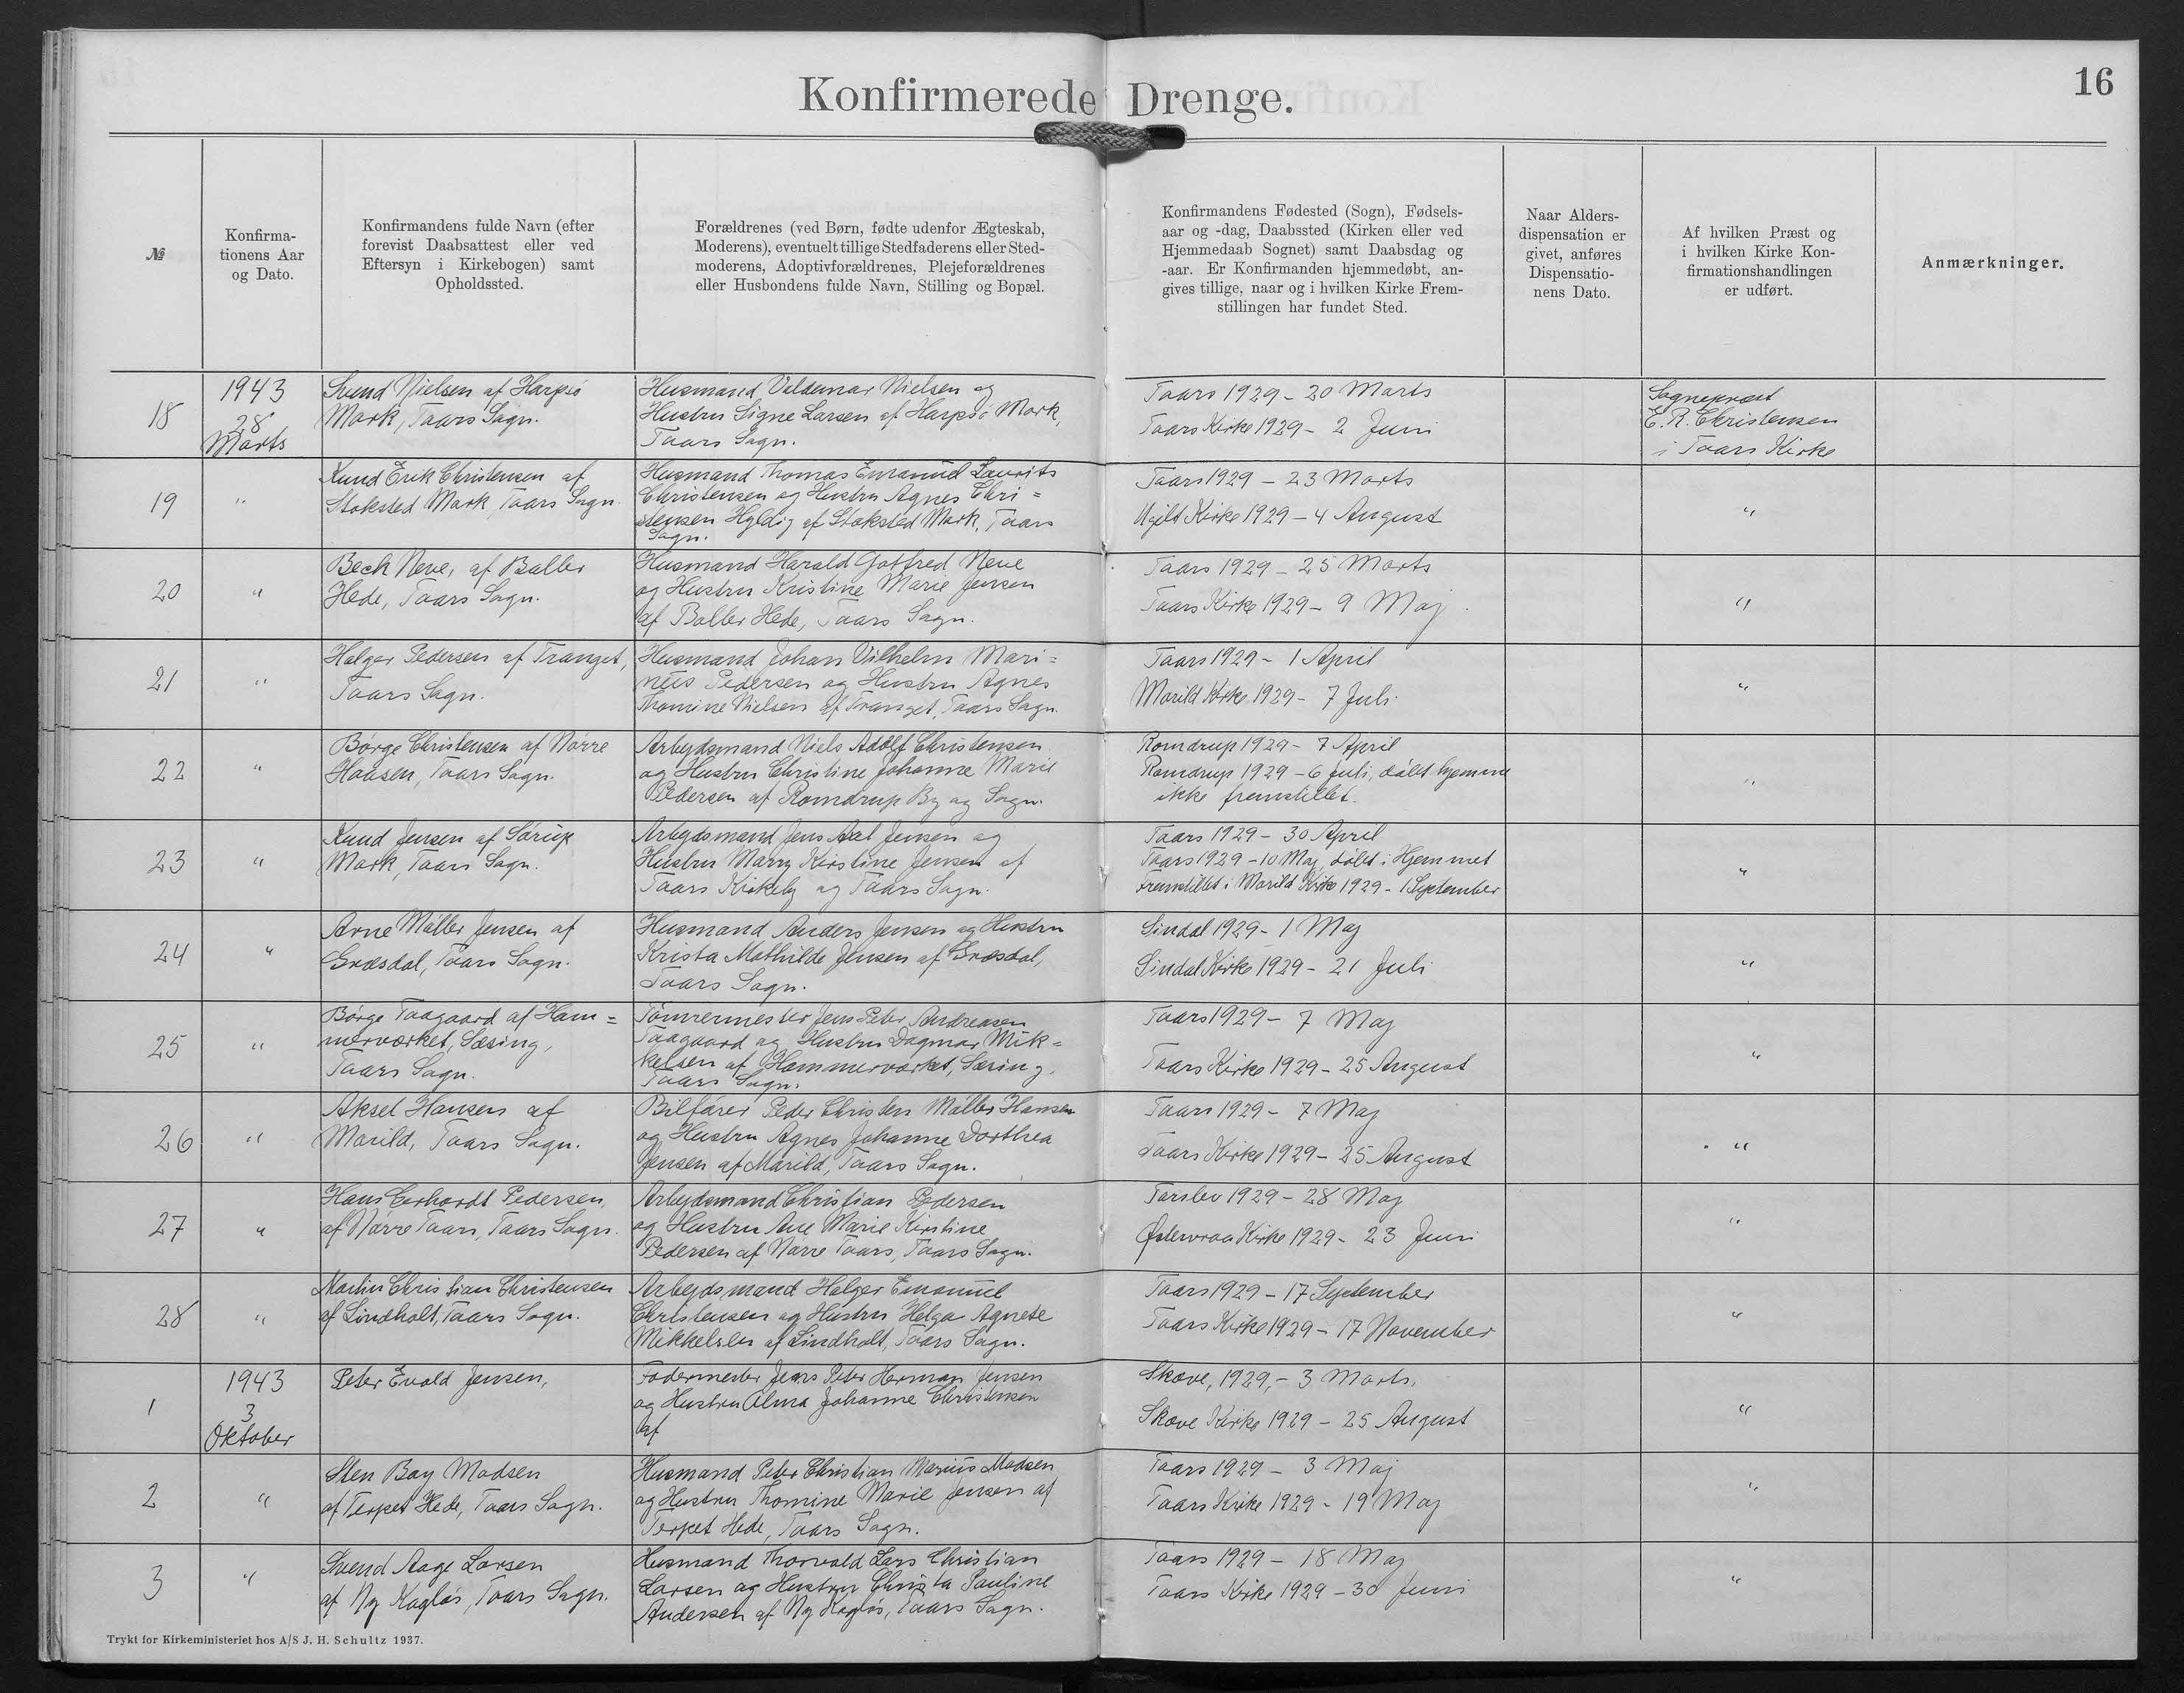 16
Konfirmerede Drenge.
№
Konfirma-
tionens Aar
og Dato.
Konfirmandens fulde Navn (efter
forevist Daabsattest eller ved
Eftersyn i Kirkebogen) samt
Opholdssted.
Forældrenes (ved Børn, fødte udenfor Ægteskab,
Moderens), eventuelt tillige Stedfaderens eller Sted-
moderens, Adoptivforældrenes, Plejeforældrenes
eller Husbondens fulde Navn, Stilling og Bopæl.
Konfirmandens Fødested (Sogn), Fødsels-
aar og -dag, Daabssted (Kirken eller ved
Hjemmedaab Sognet) samt Daabsdag og
-aar. Er Konfirmanden hjemmedøbt, an-
gives tillige, naar og i hvilken Kirke Frem-
stillingen har fundet Sted.
Naar Alders-
dispensation er
givet, anføres
Dispensatio-
nens Dato.
Af hvilken Præst og
i hvilken Kirke Kon-
firmationshandlingen
er udført.
Anmærkninger.
18
1943
28
Marts
Svend Nielsen af Harpsø
Mark, Taars Sogn.
Husmand Valdemar Nielsen og
Hustru Signe Larsen af Harpsø Mark,
Taars Sogn.
Taars 1929 - 20 Marts
Taars Kirke 1929 - 2 Juni
Sognepræst
E. R. Christensen
i Taars Kirke
19
"
Knud Erik Christensen af
Stoksted Mark, Taars Sogn.
Husmand Thomas Emanuel Laurits
Christensen og Hustru Agnes Chri=
stensen Hyldig af Stoksted Mark, Taars
Sogn.
Taars 1929 - 23 Marts
Ugilt Kirke 1929 - 4 August
"
20
"
Beck Neve, af Baller
Hede, Taars Sogn.
Husmand Harald Gotfred Neve
og Hustru Kristine Marie Jensen
af Baller Hede, Taars Sogn.
Taars 1929 - 25 Marts
Taars Kirke 1929 - 9 Maj
"
21
"
Holger Pedersen af Tranget,
Taars Sogn.
Husmand Johan Vilhelm Mari=
nus Pedersen og Hustru Agnes
Thomine Nielsen af Tranget, Taars Sogn.
Taars 1929 - 1 April
Morild Kirke 1929 - 7 Juli
"
22
"
Børge Christensen af Nørre
Housen, Taars Sogn.
Arbejdsmand Niels Adolf Christensen
og Hustru Christine Johanne Marie
Pedersen af Romdrup By og Sogn.
Romdrup 1929 - 7 April
Romdrup 1929 - 6 Juli, døbt hjemme
ikke fremstillet.
"
23
"
Knud Jensen af Sørup
Mark, Taars Sogn.
Arbejdsmand Jens Axel Jensen og
Hustru Marry Kirstine Jensen af
Taars Kirkeby og Taars Sogn.
Taars 1929 - 30 April
Taars 1929 - 10 Maj, døbt i Hjemmet
Fremstillet i Morild Kirke 1929 - 1 September
"
24
"
Arne Møller Jensen af
Græsdal, Taars Sogn.
Husmand Anders Jensen og Hustru
Krista Mathilde Jensen af Græsdal,
Taars Sogn.
Sindal 1929 - 1 Maj
Sindal Kirke 1929 - 21 Juli
"
25
"
Børge Taagaard af Ham=
merværket, Sæsing,
Taars Sogn.
Tømrermester Jens Peter Andreasen
Taagaard og Hustru Dagmar Mik=
kelsen af Hammerværket, Sæsing,
Taars Sogn.
Taars 1929 - 7 Maj
Taars Kirke 1929 - 25 August
"
26
"
Aksel Hansen af
Morild, Taars Sogn.
Bilfører Peder Christen Møller Hansen
og Hustru Agnes Johanne Dorthea
Jensen af Morild, Taars Sogn.
Taars 1929 - 7 Maj
Taars Kirke 1929 - 25 August
"
27
"
Hans Gerhardt Pedersen,
af Nørre Taars, Taars Sogn.
Arbejdsmand Christian Pedersen
og Hustru Ane Marie Kirstine
Pedersen af Nørre Taars, Taars Sogn.
Torslev 1929 - 28 Maj
Østervraa Kirke 1929 - 23 Juni
"
28
"
Martin Christian Christensen
af Lindholt, Taars Sogn.
Arbejdsmand Holger Emanuel
Christensen og Hustru Helga Agnete
Mikkelsen af Lindholt, Taars Sogn.
Taars 1929 - 17 September
Taars Kirke 1929 - 17 November
"
1
1943
3
Oktober
Peter Evald Jensen,
Fodermester Jens Peter Herman Jensen
og Hustru Alma Johanne Christensen
af
Skæve, 1929, - 3 Marts,
Skæve Kirke 1929 - 25 August
"
2
"
Sten Bay Madsen
af Terpet Hede, Taars Sogn.
Husmand Peter Christian Marius Madsen
og Hustru Thomine Marie Jensen af
Terpet Hede, Taars Sogn.
Taars 1929 - 3 Maj
Taars Kirke 1929 - 19 Maj
"
3
"
Svend Aage Larsen
af Ny Kogløs, Taars Sogn.
Husmand Thorvald Lars Christian
Larsen og Hustru Christa Pauline
Andersen af Ny Kogløs, Taars Sogn.
Taars 1929 - 18 Maj
Taars Kirke 1929 - 30 Juni
"
Trykt for Kirkeministeriet hos A/S J. H. Schultz 1937.